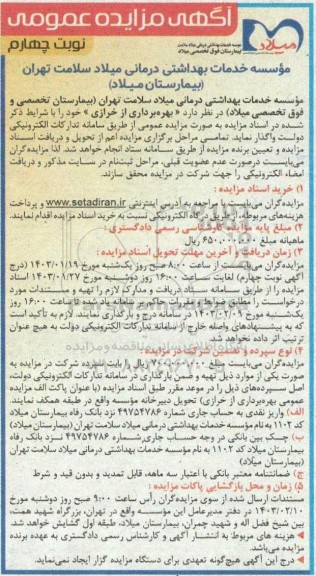 آگهی مزایده عمومی
نوبت چهارم
میلاد
بیمارستان فوق تخصصی میلاد
مؤسسه خدمات بهداشتی درمانی میلاد سلامت تهران
(بیمارستان میلاد)
مؤسسه خدمات بهداشتی درمانی میلاد سلامت تهران (بیمارستان تخصصی و
فوق تخصصی میلاد) در نظر دارد « بهره‌برداری از خرازی » خود را با شرایط ذکر
شده در اسناد مزایده به صورت مزایده عمومی از طریق سامانه تدارکات الکترونیکی
دولت واگذار نماید. تمامی مراحل برگزاری مزایده اعم از تحویل و دریافت اسناد
مزایده و تعیین برنده مزایده از طریق سامانه ستاد انجام خواهد شد. لذا مزایده‌گران
می‌بایست درصورت عدم عضویت قبلی، مراحل ثبت‌نام در سایت مذکور و دریافت
امضاء الکترونیکی را جهت شرکت در مزایده محقق سازند.
۱) خرید اسناد مزایده :
مزایده‌گران می‌بایست با مراجعه به آدرس اینترنتی www.setadiran.ir و پرداخت
هزینه‌های مربوطه، از طریق درگاه الکترونیکی نسبت به خرید اسناد مزایده اقدام نمایند.
۲) مبلغ پایه مزایده کارشناسی رسمی دادگستری :
ماهیانه مبلغ ۶۵۰.۰۰۰.۰۰۰ ریال
۳) زمان دریافت و آخرین مهلت تحویل اسناد مزایده :
مزایده‌گران می‌بایست از ساعت ۸:۰۰ صبح روز یکشنبه مورخ ۱۴۰۳/۰۱/۱۹ (درج
آگهی نوبت چهارم) لغایت ساعت ۱۶:۰۰ روز دوشنبه مورخ ۱۴۰۳/۰۱/۲۷ اسناد
مزایده را از طریق سامانه ستاد دریافت و مدارک لازم را تهیه و مستندات مورد
درخواست را مطابق ضوابط و مقررات حاکم بر سامانه یاد شده تا ساعت ۱۶:۰۰ روز
یکشنبه مورخ ۱۴۰۳/۰۲/۰۹ در سامانه درج و بارگذاری نمایند. لازم به تأکید است
که به پیشنهادهای واصله خارج از سامانه تدارکات الکترونیکی دولت به هیچ عنوان
ترتیب اثر داده نخواهد شد.
۴) نوع سپرده و تضمین شرکت در مزایده :
مزایده‌گران می‌بایست مبلغ ریال را بابت سپرده شرکت در مزایده به
صورت یکی از موارد ذیل تهیه و ضمن بارگذاری در سامانه تدارکات الکترونیکی دولت،
اصل سپرده‌های ذیل را در موعد مقرر طبق اسناد مزایده (با عنوان پاکت الف مزایده
عمومی بهره‌برداری از خرازی) تحویل دبیرخانه مؤسسه واقع در طبقه همکف نمایند.
الف) واریز نقدی به حساب جاری شماره ۴۹۷۵۴۷۸۶ نزد بانک رفاه بیمارستان میلاد
کد ۱۱۰۲ به نام مؤسسه خدمات بهداشتی درمانی میلاد سلامت تهران (بیمارستان میلاد)
ب) چک بین بانکی در وجه حساب جاری شماره ۴۹۷۵۴۷۸۶ نزد بانک رفاه
بیمارستان میلاد کد ۱۱۰۲ به نام مؤسسه خدمات بهداشتی درمانی میلاد سلامت تهران
(بیمارستان میلاد)
ج) ضمانتنامه معتبر بانکی با اعتبار سه ماهه، قابل تمدید و بدون قید و شرط
۵) زمان و محل بازگشایی پاکات مزایده :
مستندات ارسال شده از سوی مزایده‌گران رأس ساعت ۹:۰۰ صبح روز دوشنبه مورخ
۱۴۰۳/۰۲/۱۰ در دفتر مدیرعامل این مؤسسه واقع در تهران، بزرگراه شهید همت،
بین شیخ فضل اله و شهید چمران، بیمارستان میلاد، طبقه اول گشایش خواهد شد.
هزینه های مربوط به انتشار آگهی و کارشناس رسمی دادگستری به عهده برنده
مزایده می‌باشد.
درج این آگهی هیچ‌گونه تعهدی برای دستگاه مزایده گزار ایجاد نمی‌نماید.